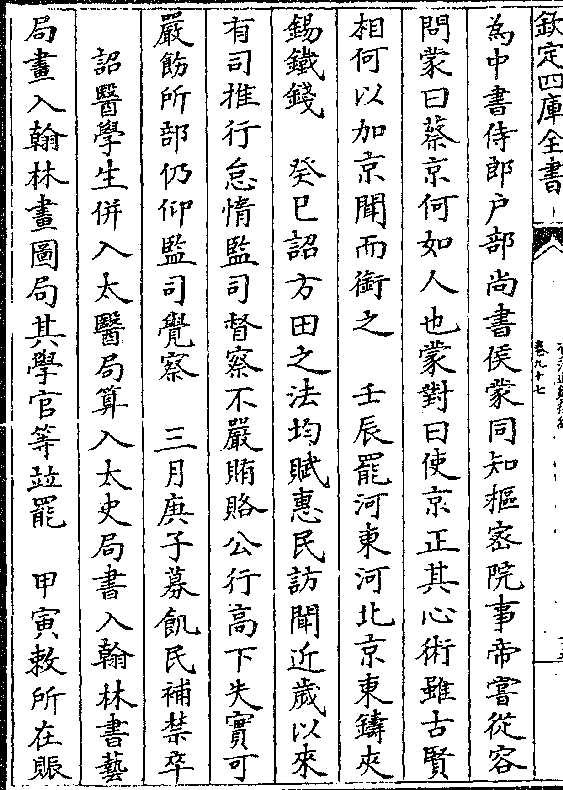 欽定四庫全書
卷九十七
為中書侍郎户部尚書侯蒙同知樞宻院事帝嘗從容
問蒙曰蔡京何如人也蒙對曰使京正其心術雖古賢
相何以加京聞而銜之　壬辰罷河東河北京東鑄夾
錫鐵錢　癸巳詔方田之法均賦惠民訪聞近歲以來
有司推行怠惰監司督察不嚴賄賂公行高下失實可
嚴飭所部仍仰監司覺察　三月庚子募飢民補禁卒
詔醫學生併入太醫局算入太史局書入翰林書藝
局畫入翰林畫圖局其學官等竝罷　甲寅敕所在賑